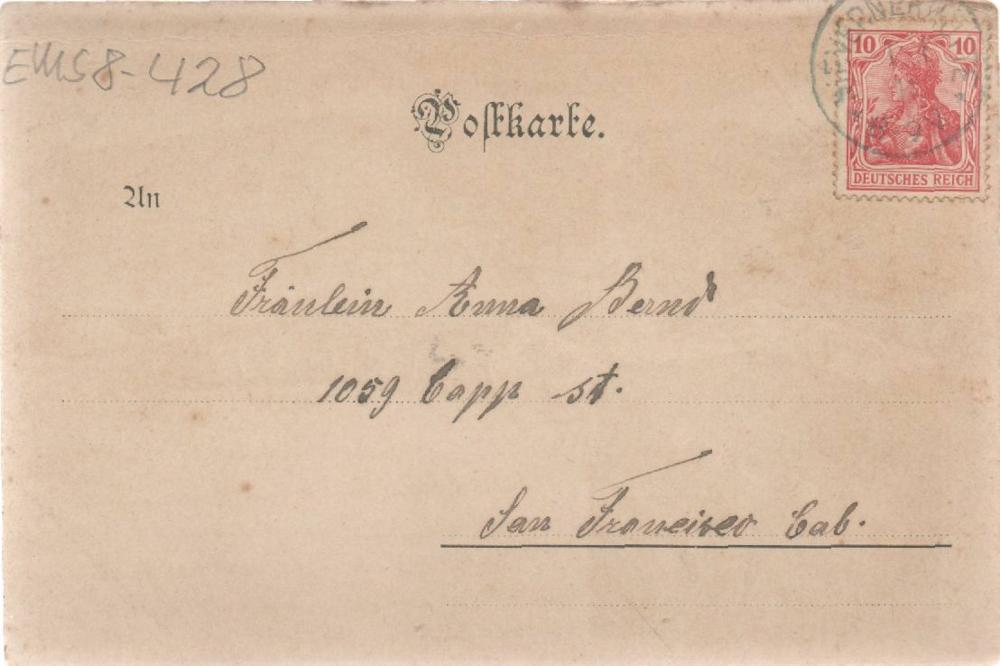 EMS8-428
10 10
DEUTSCHES REICH
Postkarte.
An
Fräulein Anna Bernd
1059 Capp st.
San Francisco Cal.